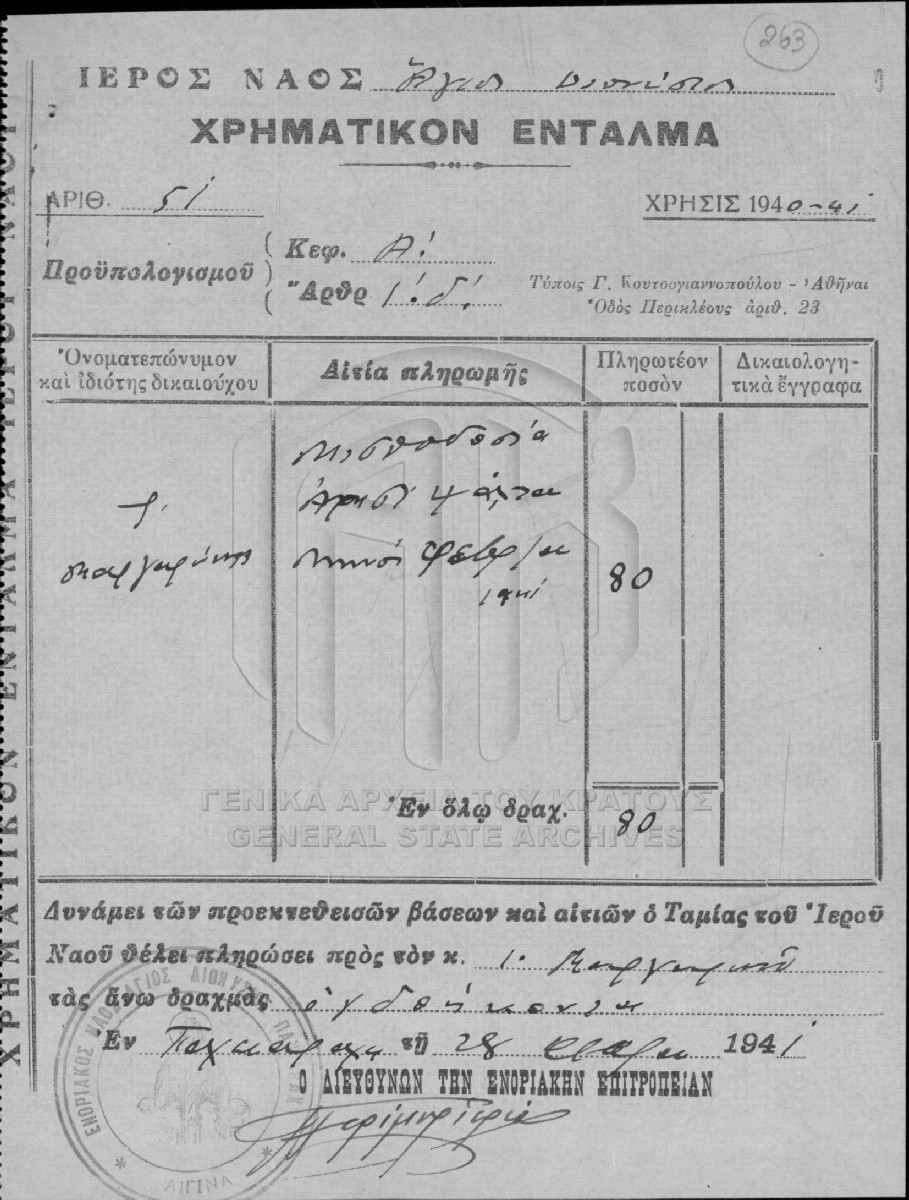 263
ΙΕΡΟΣ ΝΑΟΣ Ἅγιος Διονύσιος
ΧΡΗΜΑΤΙΚΟΝ ΕΝΤΑΛΜΑ
ΑΡΙΘ. 51
ΧΡΗΣΙΣ 1940-41
Προϋπολογισμοῦ
Κεφ. Α΄.
Ἄρθρ 1΄. δ΄.
Τύποις Γ. Κουτσογιαννοπούλου - Ἀθῆναι
Ὁδὸς Περικλέους ἀριθ. 23
Ὀνοματεπώνυμον
καὶ ἰδιότης δικαιούχου
Αἰτία πληρωμῆς
Πληρωτέον
ποσὸν
Δικαιολογη-
τικὰ ἔγγραφα
Μισθοδοσία
Ἀριστ. Ψάλτου
Μηνὸς Φεβρ/ου
1941
80
Ἐν ὅλῳ δραχ. 80
Δυνάμει τῶν προεκτεθεισῶν βάσεων καὶ αἰτιῶν ὁ Ταμίας τοῦ Ἱεροῦ
Ναοῦ θέλει πληρώσει πρὸς τὸν κ.
τὰς ἄνω δραχμὰς ὀγδοήκοντα
Ἐν Παχειοράχη τῇ 28 Φεβρ/ου 1941
Ο ΔΙΕΥΘΥΝΩΝ ΤΗΝ ΕΝΟΡΙΑΚΗΝ ΕΠΙΤΡΟΠΕΙΑΝ
ΕΝΟΡΙΑΚΟΣ ΝΑΟΣ ΑΓΙΟΣ ΔΙΟΝΥΣΙΟΣ
ΑΙΓΙΝΑ
ΓΕΝΙΚΑ ΑΡΧΕΙΑ ΤΟΥ ΚΡΑΤΟΥΣ
GENERAL STATE ARCHIVES